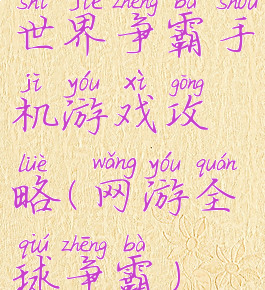 shì jiè zhēng bà shǒu
世界争霸手
jī yóu xì gōng
机游戏攻
lüè wǎng yóu quán
略(网游全
qiú zhēng bà
球争霸)